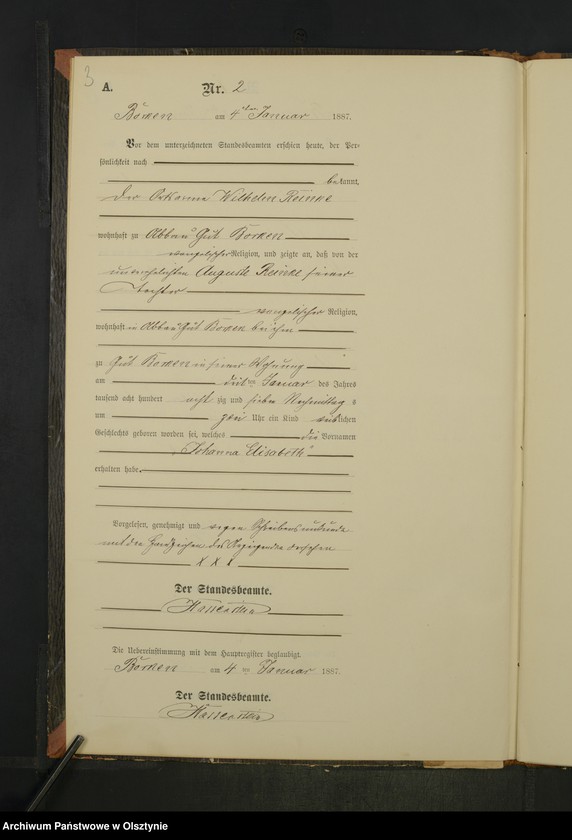 3
A. Nr. 2
Börken am 4ten Januar 1887.
Vor dem unterzeichneten Standesbeamten erschien heute, der Per-
sönlichkeit nach
bekannt,
der Wilhelm Reinke
wohnhaft zu Abbau Gut Börken
evangelischer Religion, und zeigte an, daß von der
unverehelichten Auguste Reinke seiner
Tochter
evangelischer Religion,
wohnhaft in Abbau Gut Börken bei ihm
zu Gut Börken in seiner Wohnung
am ten Januar des Jahres
tausend acht hundert acht zig und sieben Nachmittag s
um zwei Uhr ein Kind weiblichen
Geschlechts geboren worden sei, welches die Vornamen
„Johanna Elisabeth"
erhalten habe.
Vorgelesen, genehmigt und wegen Schreibensunkunde
mit den Handzeichen des Anzeigenden versehen
X X X
Der Standesbeamte.
Die Uebereinstimmung mit dem Hauptregister beglaubigt.
Börken am 4 ten Januar 1887.
Der Standesbeamte.
Archiwum Państwowe w Olsztynie